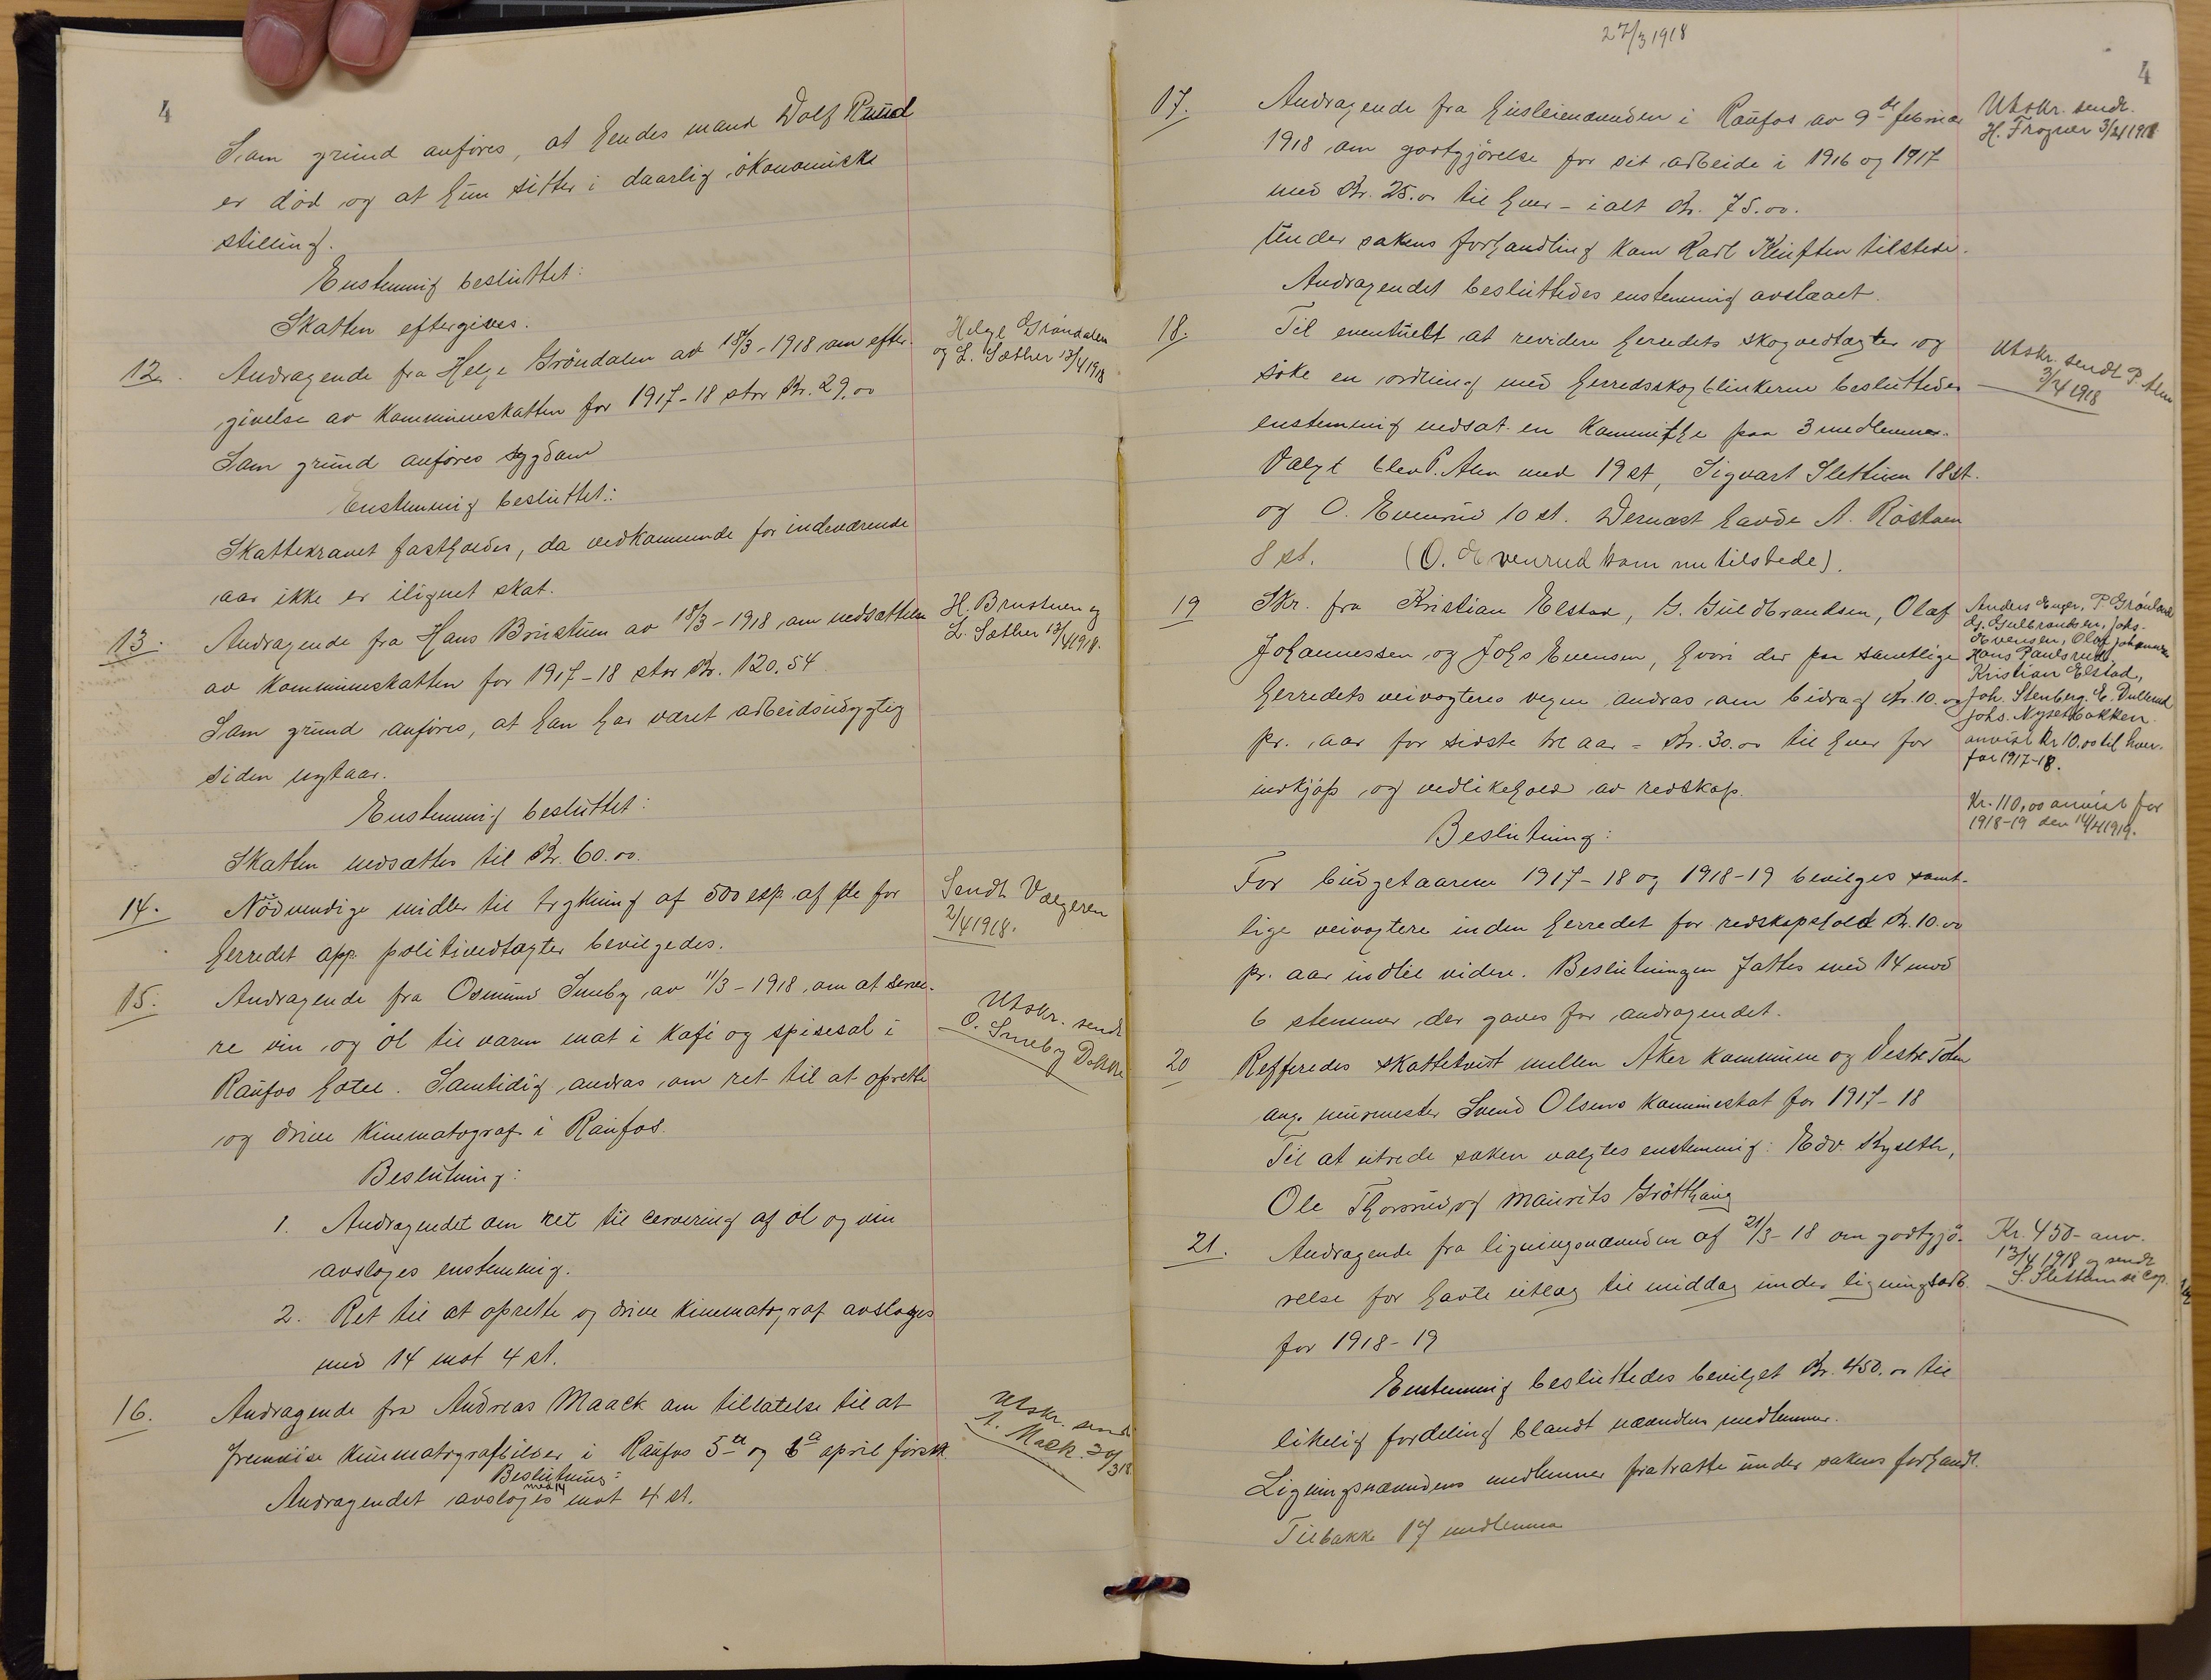 4
Som grund anføres, at hendes mand Dolf Ruud
er död og at hun sitter i daarlig ökonomiske
stilling.
Enstemmig besluttet:
Skatten eftergives.
12. Andragende fra Helge Gröndalen av 18/3-1918 om efter-
givelse av kommuneskatten for 1917-18 stor Kr. 29.00
Som grund anføres sygdom
Enstemmig besluttet:
Skattekravet fastholdes, da vedkommende for indeværende
aar ikke er ilignet skat.
Helge Gröndalen
og L. Sæther 13/4 1918
13. Andragende fra Hans Brustuen av 18/3-1918 om nedsættelse
av kommuneskatten for 1917-18 stor Kr. 120.54
Som grund anføres, at han har været arbeidsudygtig
siden nytaar.
Enstemmig besluttet:
Skatten nedsættes til Kr. 60.00.
H. Brustuen og
L. Sæther 13/4 1918.
14. Nödvendige midler til trykning af 500 exp. af de for
herredet opp. politivedtægter bevilgedes.
Sendt Vælgeren
2/4 1918.
15. Andragende fra Osmund Smeby av 11/3-1918 om at serve-
re vin og öl til varm mat i kafé og spisesal i
Raufos hotel. Samtidig andras om ret til at oprette
og drive kinematograf i Raufos.
Beslutning:
1. Andragendet om ret til cervering af öl og vin
avsloges enstemmig.
2. Ret til at oprette og drive kinematograf avsloges
med 14 mot 4 st.
Utskr. sendt
O. Smeby
16. Andragende fra Andreas Maack om tillatelse til at
fremvise kinematografbilder i Raufos 5te og 6te april förstk.
Beslutning:
Andragendet avsloges med 14 mot 4 st.
Utskr. sendt
A. Mack. 30/3 18
27/3 1918
4
17. Andragende fra husleienævnden i Raufos av 9de februar
1918 om godtgjörelse for sit arbeide i 1916 og 1917
med Kr. 25.00 til hver - ialt Kr. 75.00.
Under sakens forhandling kom Karl Kluften tilstede.
Andragendet besluttedes enstemmig avslaaet.
Utskr. sendt
H. Frogner 3/4 1918
18. Til eventuelt at revidere herredets skogvedtægter og
söke en ordning med herredsskogblinkerne besluttedes
enstemmig nedsat en kommitte paa 3 medlemmer.
Valgt blev P. Alm med 19 st, Sigvart Slettum 18 st.
og O. Evenrud 10 st. Dernæst havde A. Röstøen
8 st. (O. Evenrud kom nu tilstede).
Utskr. sendt P. Alm
3/4 1918
19 Skr. fra Kristian Elstad, G. Guldbrandsen, Olaf
Johannessen og Johs Evensen, hvori der paa samtlige
herredets veivogteres vegne andras om bidrag Kr. 10.00
pr. aar for sidste tre aar = Kr. 30.00 til hver for
indkjöp og vedlikehold av redskap.
Beslutning:
For budgetaarene 1917-18 og 1918-19 bevilges samt-
lige veivogtere inden herredet for redskapshold Kr. 10.00
pr. aar indtil videre. Beslutningen fattes med 14 mod
6 stemmer der gaves for andragendet.
Anders Enger, P. Grönland
G. Gulbrandsen, Johs.
Evensen, Olaf Johannessen
Hans Paulsrud,
Kristian Elstad,
Joh. Stenberg. E. Dullerud
Johs. Nysetbakken.
anvist Kr 10.00 til hver.
for 1917-18.
Kr. 110,00 anvist for
1918-19 den 14/4 1919.
20 Refferedes skattetvist mellem Aker kommune og Vestre Toten
ang. murmester Svend Olsens kommuneskat for 1917-18
Til at utrede saken valgtes enstemmig: Edv. Kyseth,
Ole Thorsrud og Maurits Grötthaug
21. Andragende fra ligningsnævnden af 21/3-18 om godtgjö-
relse for havte utlæg til middag under ligningsarb.
for 1918-19
Enstemmig besluttedes bevilget Kr. 450.00 til
likelig fordeling blandt nævndens medlemmer.
Ligningsnævndens medlemmer fratratte under sakens forhandl.
Tilbake 17 medlemmer
Kr. 450- anv.
13/4 1918 og sendt
S. Slettum